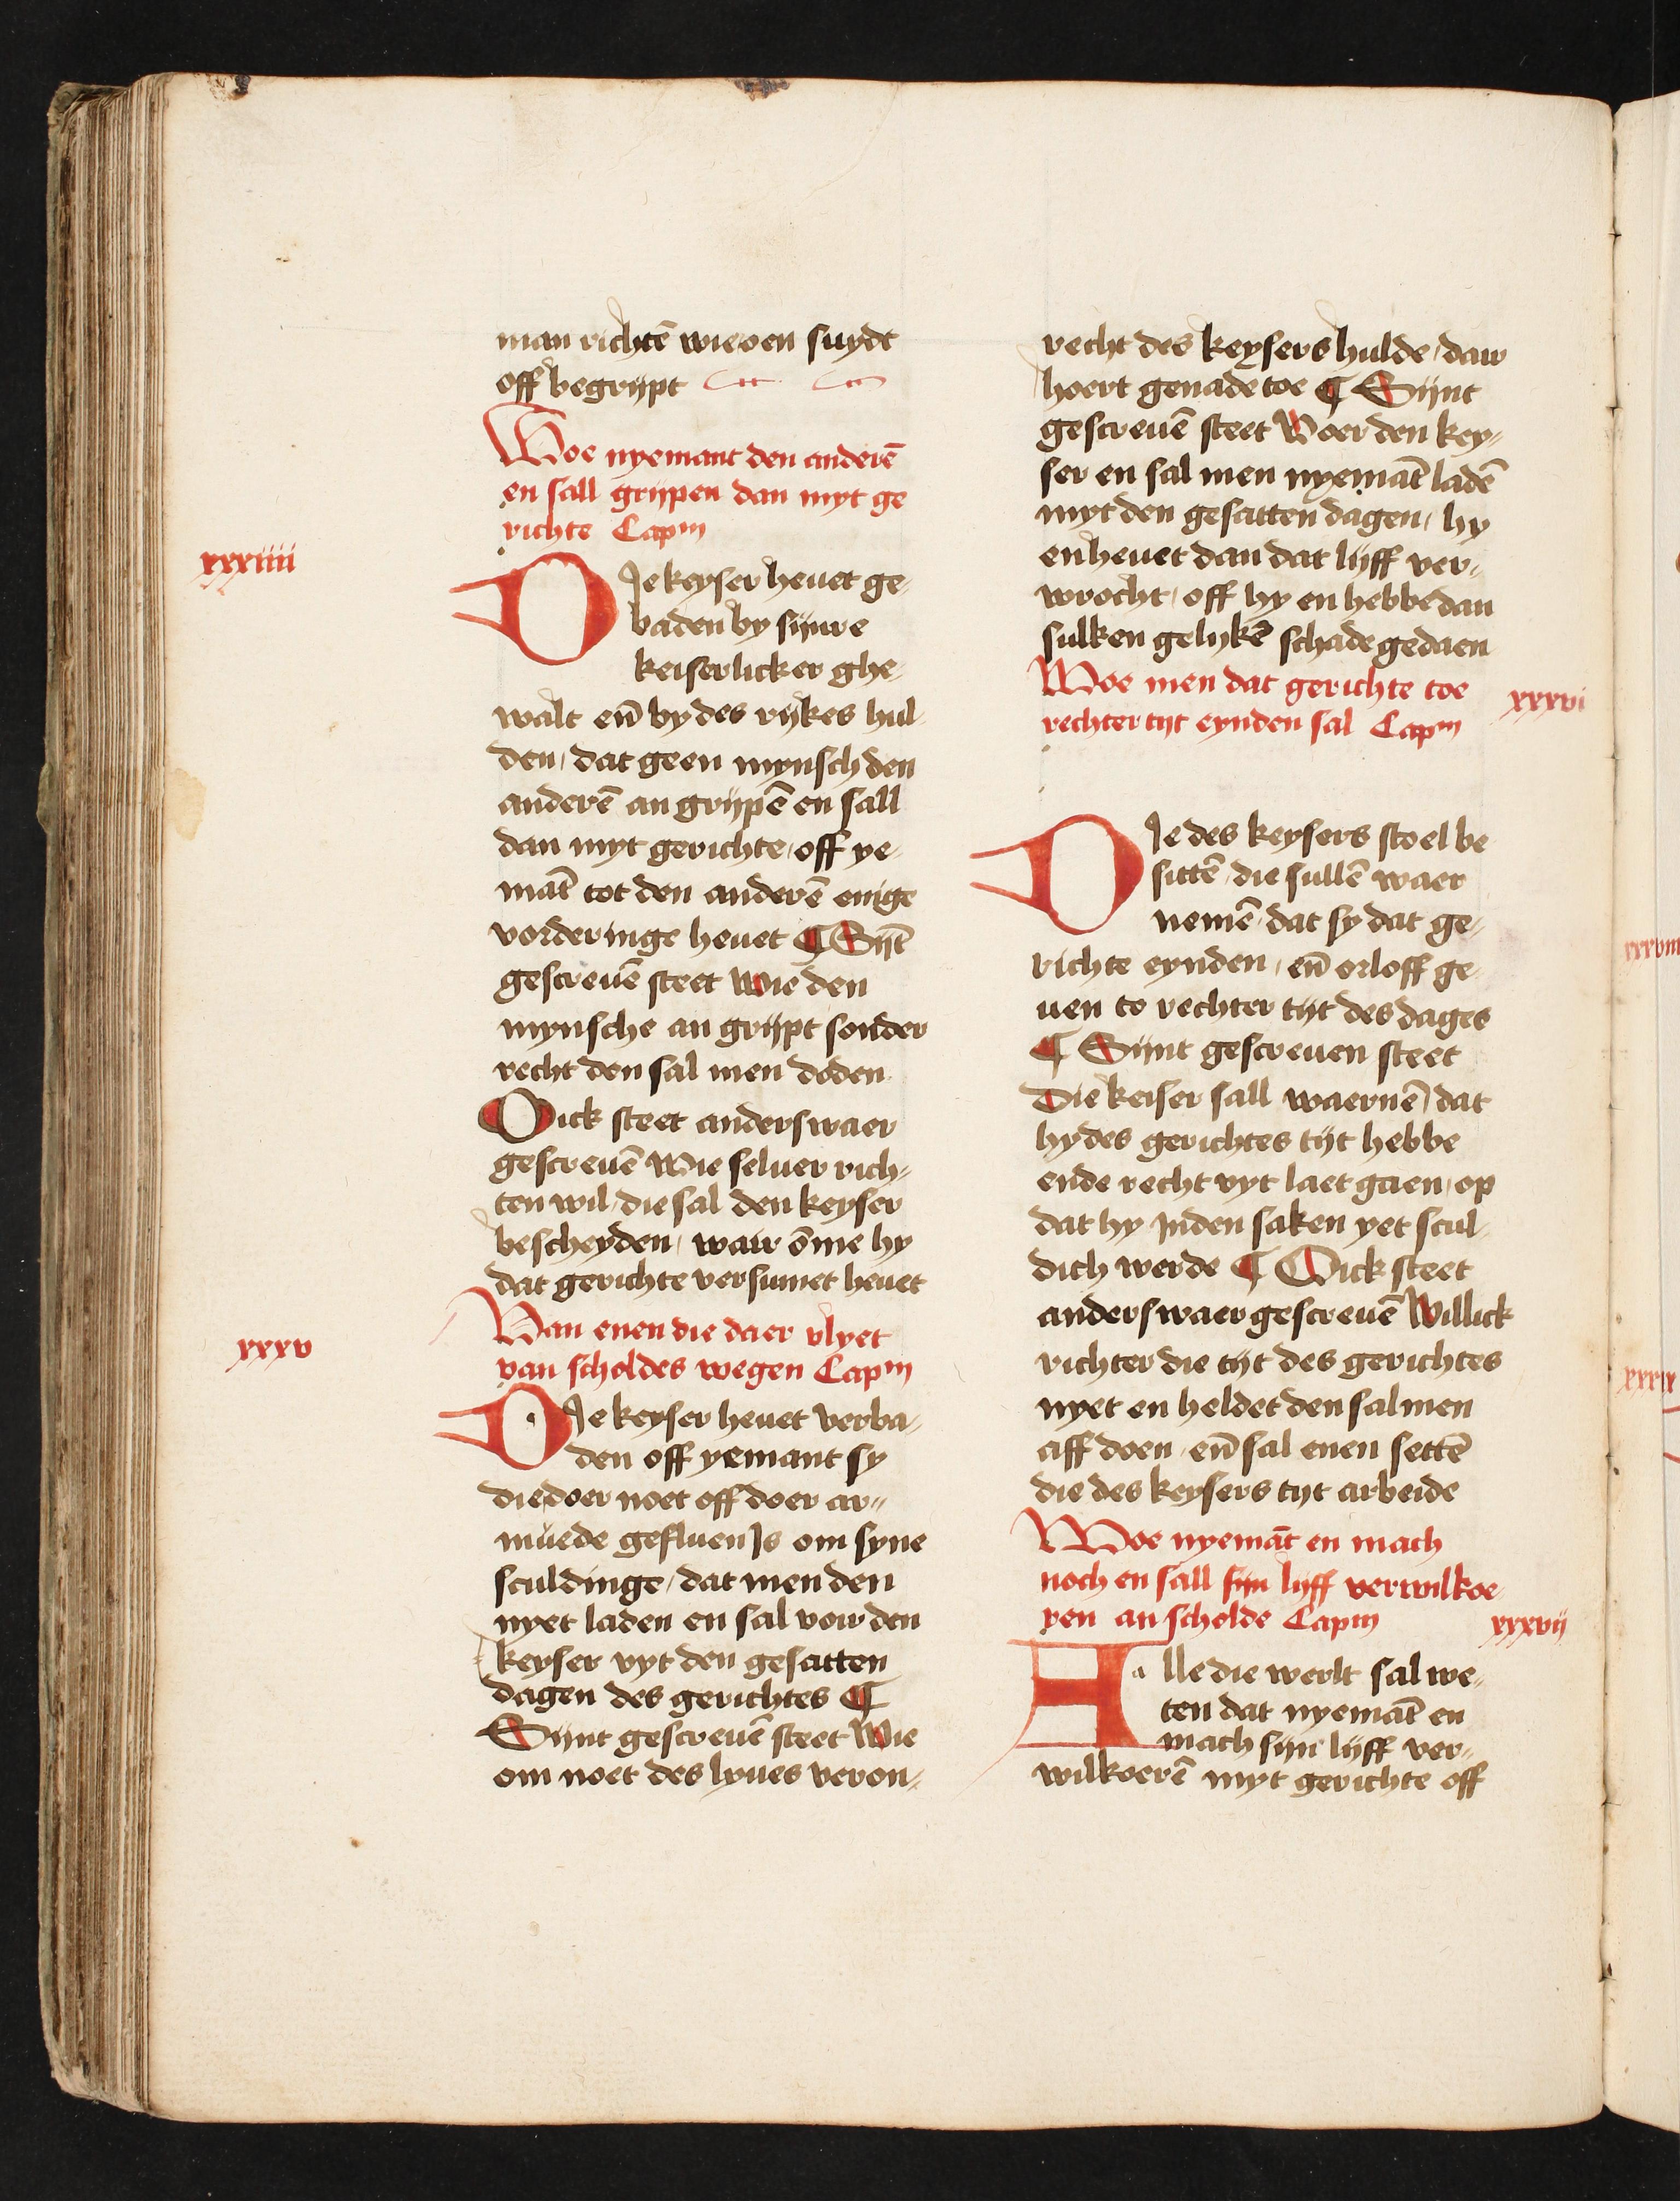 man richtē wie oen suydt
off begrijpt
Woe nyemant den anderē
en sall grijpen dan myt ge
richte Capm
xxxiiii
DIe keyser heuet ge-
baden by sijnre
keiserlicker ghe-
walt eñ by des rijkes hul-
den, dat geen mynsch den
anderē an grijpē en sall
dan myt gerichte, off ye-
māt tot den anderē enige
vorderinge heuet ¶ Sijt̄
gescreuē steet wie den
mynsche an grijpt sonder
recht den sal men doden
Oick steet anders waer
gescreuē wie seluer rich-
ten wil, die sal den keyser
bescheyden, wair ōme hy
dat gerichte versumet heuet
Van enen die daer vlyet
van scholdes wegen Capm
xxxv
DIe keyser heuet verba-
den off yemant sy
die doer noet off doer ar-
muede gefluen is om syne
sculdinge, dat men den
nyet laden en sal vour den
keyser vyt den gesatten
dagen des gerichtes ¶
Sijnt gescreuē steet Wie
om noet des lyues veron-
recht des keysers hulde, dair
hoert genade toe ¶ Sijnt
gescreuē steet Voer den key-
ser en sal men nyemāt ladē
myt den gesatten dagen, hy
en heuet dan dat lijff ver-
wrocht, off hy en hebbe dan
sulken gelijkē schade gedaen
Woe men dat gerichte toe
rechter tijt eynden sal Capm
xxxvi
DIe des keysers stoel be
sittē, die sullē waer
nemē, dat sy dat ge-
richte eynden, eñ orloff ge-
uen to rechter tijt des dages
¶ Sijnt gescreuen steet
Die keiser sall waernē, dat
hy des gerichtes tijt hebbe
ende recht vyt laet gaen, op
dat hy inden saken yet scul-
dich werde ¶ Oick steet
anders waer gescreuē Willick
richter die tijt des gerichtes
nyet en heldet den sal men
aff doen, eñ sal enen settē
die des keysers tijt arbeide
Woe nyemāt en mach
noch en sall sijn lijff verwilkoe-
ren an scholde Capm
xxxvij
Alle die werlt sal we-
ten dat nyemāt en
mach sijn lijff ver-
wilkoerē myt gerichte off